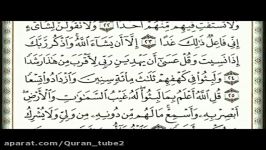 ولا تستفت فيهم منهم أحدا ٢٢ ولا تقولن لشاىء
إني فاعل ذلك غدا ٢٣ إلا أن يشاء الله واذكر ربك
إذا نسيت وقل عسى أن يهدين ربي لأقرب من هذا رشدا ٢٤
ولبثوا في كهفهم ثلاث مائة سنين وازدادوا تسعا
٢٥ قل الله أعلم بما لبثوا له غيب السموات والأرض
أبصر به وأسمع ما لهم من دونه من ولي ولا يشرك
aparat.com/Quran_tube2